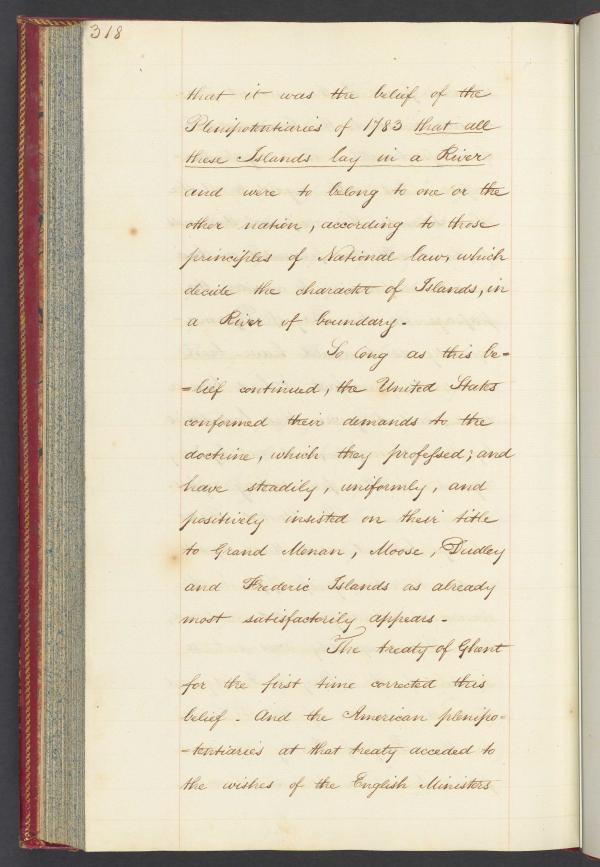 318
that it was the belief of the
Plenipotentiaries of 1783 that all
these Islands lay in a River
and were to belong to one or the
other nation, according to those
principles of National law, which
decide the character of Islands, in
a River of boundary.
So long as this be=
=lief continued, the United States
conformed their demands to the
doctrine, which they professed; and
have steadily, uniformly, and
positively insisted on their title
to Grand Menan, Moose, Dudley
and Frederic Islands as already
most satisfactorily appears.
The treaty of Ghent
for the first time corrected this
belief. And the American plenipo=
=tentiaries at that treaty acceded to
the wishes of the English Ministers